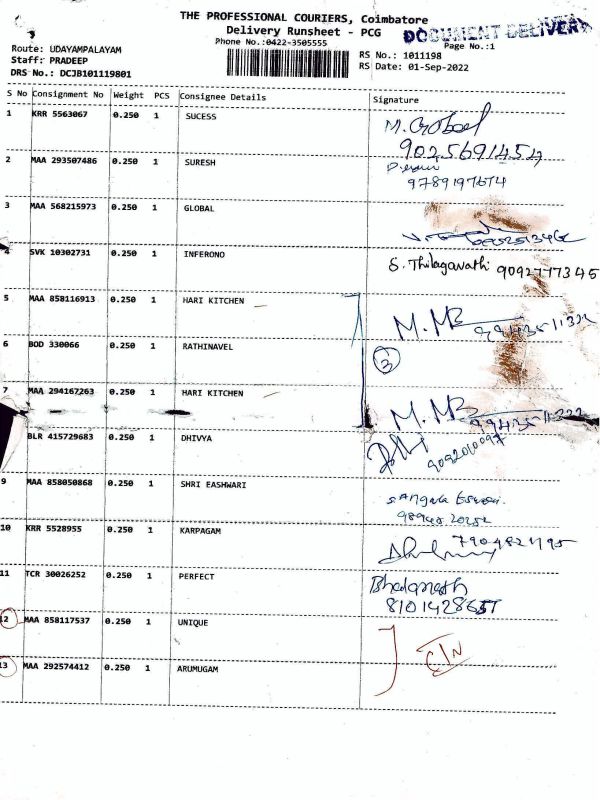 THE PROFESSIONAL COURIERS, Coimbatore
Delivery Runsheet - PCG
DOCUMENT DELIVERY
Phone No.:0422-3505555
Page No.:1
Route: UDAYAMPALAYAM
Staff: PRADEEP
DRS No.: DCJB101119801
RS No.: 1011198
RS Date: 01-Sep-2022
S No Consignment No Weight PCS Consignee Details Signature
1 KRR 5563067 0.250 1 SUCESS
9025691454
2 MAA 293507486 0.250 1 SURESH
9789197674
3 MAA 568215973 0.250 1 GLOBAL
4 SVK 10302731 0.250 1 INFERONO S. Thilagavathi 9092777345
5 MAA 858116913 0.250 1 HARI KITCHEN
M.MB
6 BOD 330066 0.250 1 RATHINAVEL
3
7 MAA 294167263 0.250 1 HARI KITCHEN
M.MB
BLR 415729683 0.250 1 DHIVYA
9 MAA 858050868 0.250 1 SHRI EASHWARI
10 KRR 5528955 0.250 1 KARPAGAM
11 TCR 30026252 0.250 1 PERFECT
12 MAA 858117537 0.250 1 UNIQUE
13 MAA 292574412 0.250 1 ARUMUGAM